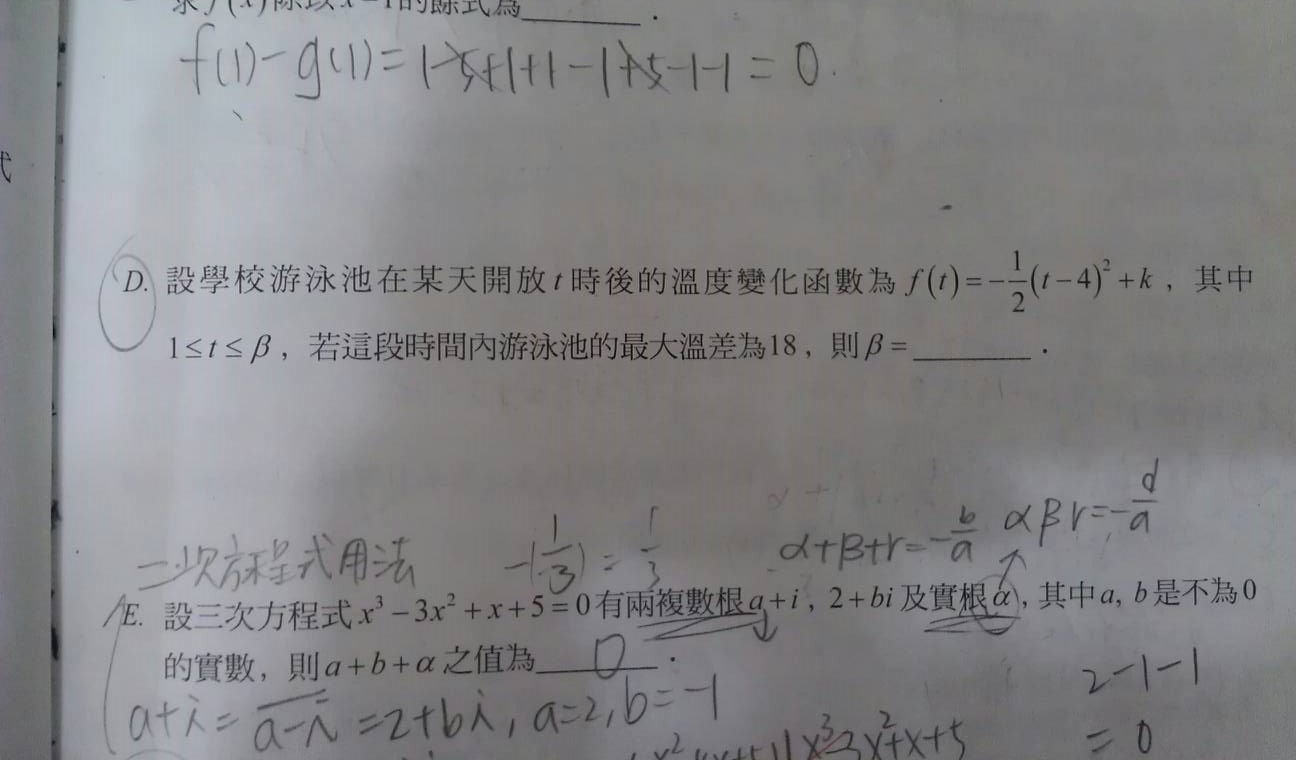 求 f(x) 除以 x−1 的餘式為________．
f(1)−g(1)=1−5+1+1−1+5−1−1=0.
式
D. 設學校游泳池在某天開放 t 時後的溫度變化函數為 f(t)=−\frac{1}{2}(t−4)²+k，其中
1≤t≤β，若這段時間內游泳池的最大溫差為18，則β=________．
α+β+r=−\frac{b}{a} αβr=−\frac{d}{a}
二次方程式用法 −(\frac{1}{3})=\frac{1}{3}
E. 設三次方程式 x³−3x²+x+5=0 有兩複數根 a+i，2+bi 及實根 α，其中 a, b 是不為 0
的實數，則 a+b+α 之值為 0．
a+i=\overline{a−i}=2+bi, a=2, b=−1
2−1−1
=0
x³−3x²+x+5